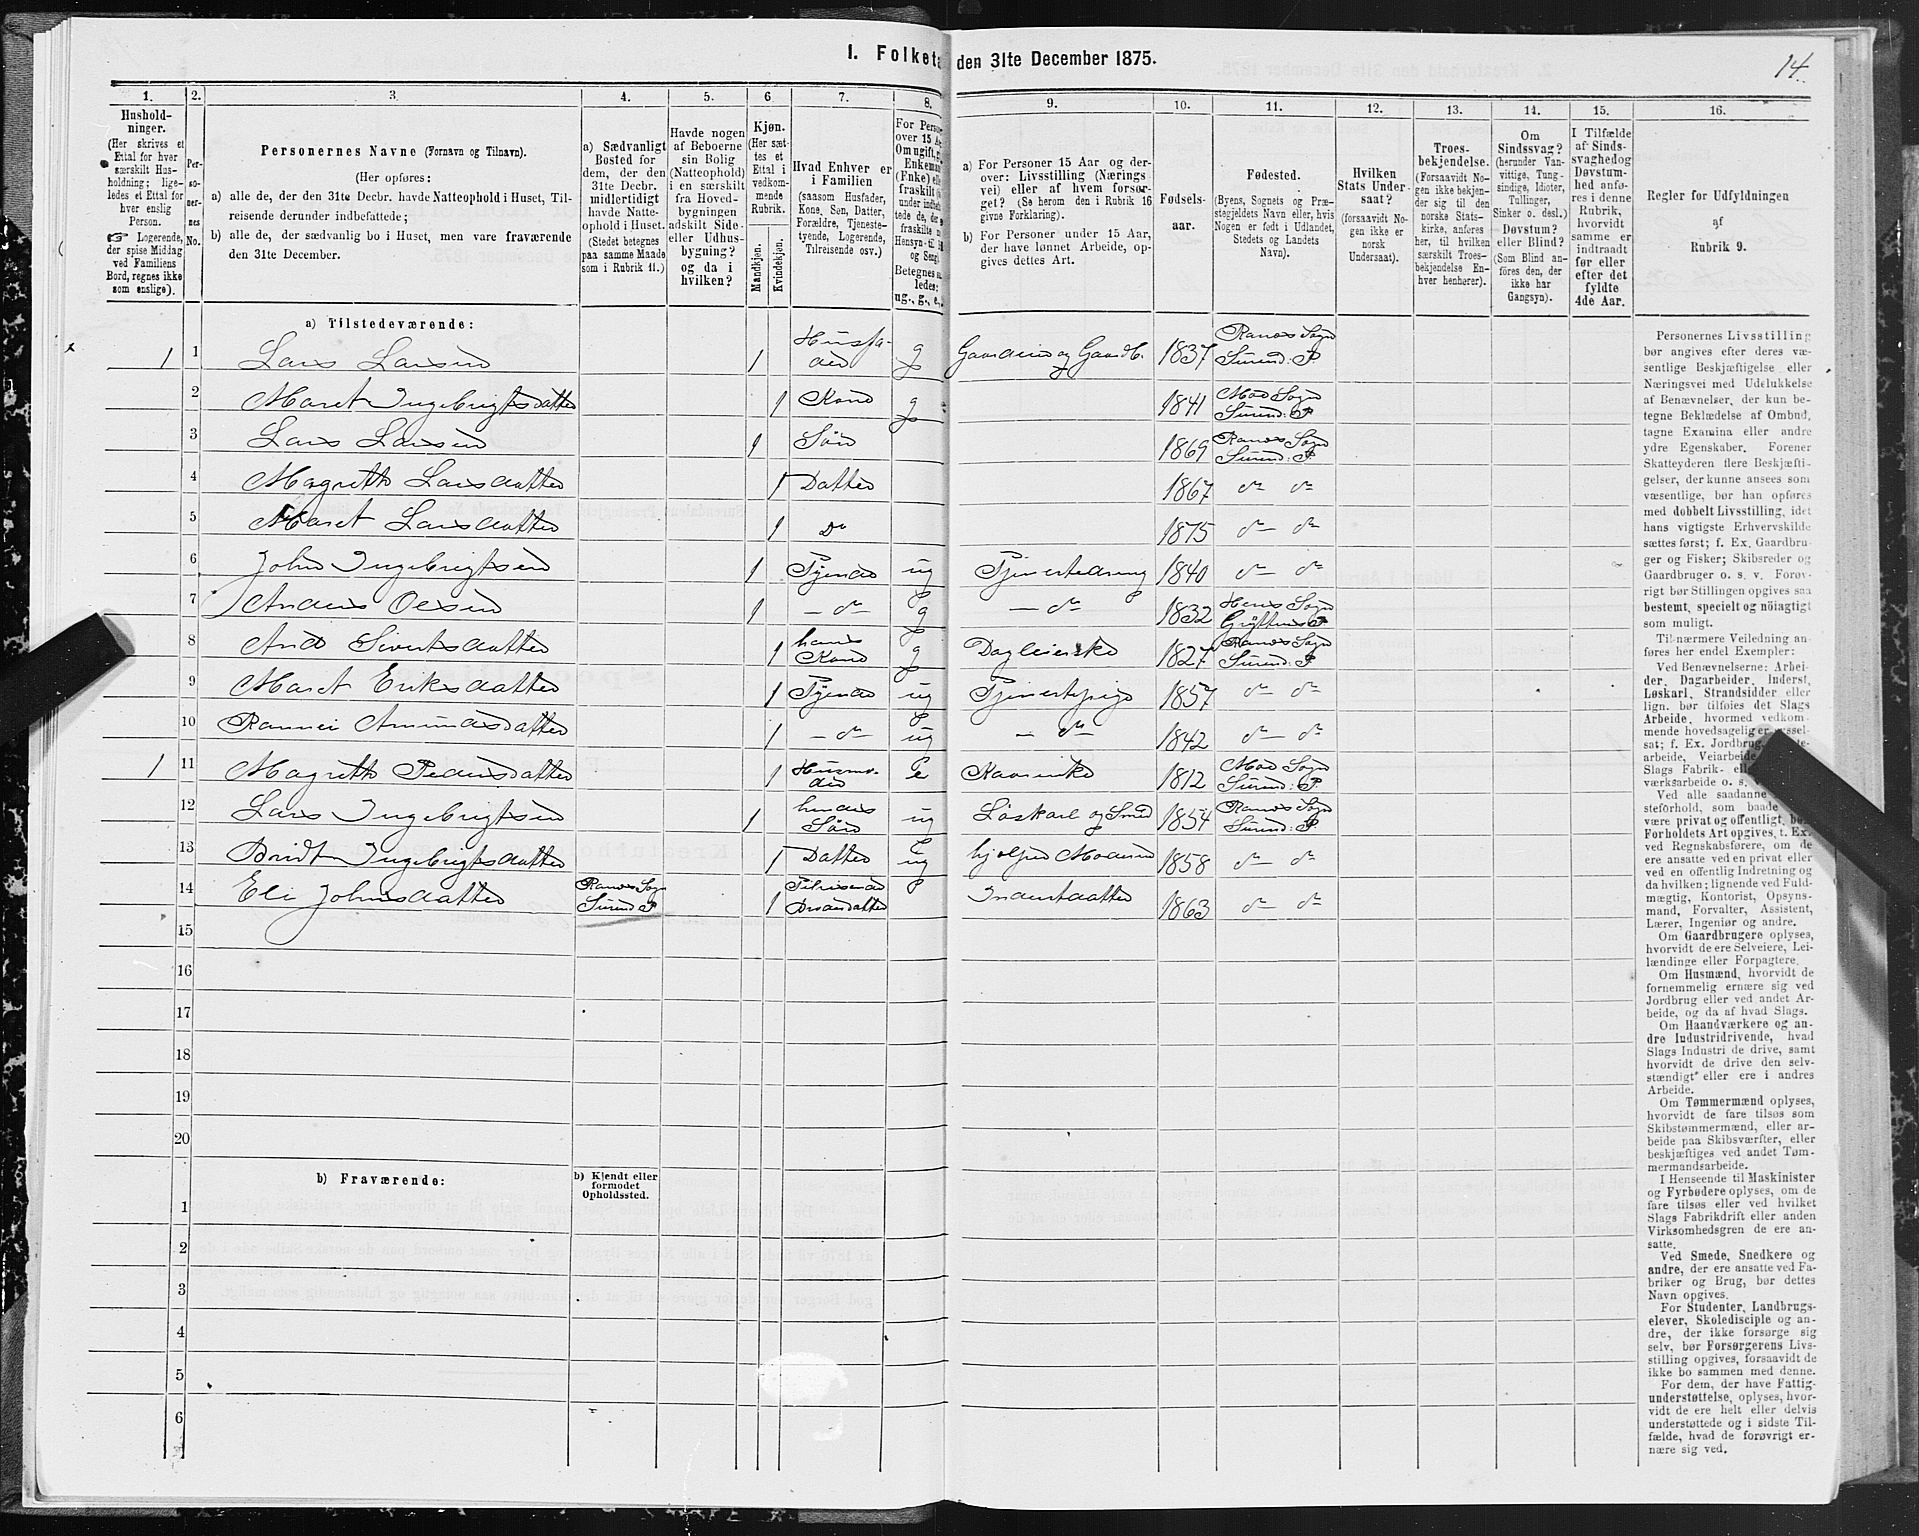 I. Folketæ den 31te December 1875.
14.
1.
2.
3.
4.
5.
6
7.
8.
9.
10.
11.
12.
13.
14.
15.
16.
Hushold-
ninger.
(Her skrives et
Ettal for hver
særskilt Hus-
holdning; lige-
ledes et Ettal for
hver enslig
Person.
☞ Logerende,
der spise Middag
ved Familiens
Bord, regnes ikke
som enslige).
Per-
so-
ner-
nes
No.
Personernes Navne (Fornavn og Tilnavn).
(Her opføres:
a) alle de, der den 31te Decbr. havde Natteophold i Huset, Til-
reisende derunder indbefattede;
b) alle de, der sædvanlig bo i Huset, men vare fraværende
den 31te December.
a) Sædvanligt
Bosted for
dem, der den
31te Decbr.
midlertidigt
havde Natte-
ophold i Huset.
(Stedet betegnes
paa samme Maade
som i Rubrik 11.)
Havde nogen
af Beboerne
sin Bolig
(Natteophold)
i en særskilt
fra Hoved-
bygningen
adskilt Side-
eller Udhus-
bygning?
og da i
hvilken?
Kjøn.
(Her sæt-
tes et
Ettal i
vedkom-
mende
Rubrik.
Mandkjøn.
Kvindekjøn.
Hvad Enhver er
i Familien
(saasom Husfader,
Kone, Søn, Datter,
Forældre, Tjeneste-
tyende, Logerende,
Tilreisende osv.)
For Perso
over 15 A
Om ugift, g
Enkeman
(Fnke) ell
fraskilt
Betegnes s
ledes:
ug., g., e.,
a) For Personer 15 Aar og der-
over: Livsstilling (Nærings
vei) eller af hvem forsør-
get? (Se herom den i Rubrik 16
givne Forklaring).
b) For Personer under 15 Aar,
der have lønnet Arbeide, op-
gives dettes Art.
Fødsels-
aar.
Fødested.
(Byens, Sognets og Præ-
stegjeldets Navn eller, hvis
Nogen er født i Udlandet,
Stedets og Landets
Navn).
Hvilken
Stats Under-
saat?
(forsaavidt No-
gen ikke er
norsk
Undersaat).
Troes-
bekjendelse.
(Forsaavidt No-
gen ikke bekjen-
der sig til den
norske Stats-
kirke, anføres
her, til hvilken
særskilt Troes-
bekjendelse En-
hver henhører).
Om
Sindssvag?
(herunder Van-
vittige, Tung-
sindige, Idioter,
Tullinger,
Sinker o. desl.)
Døvstum?
eller Blind?
(Som Blind an-
føres den, der
ikke har
Gangsyn).
I Tilfælde
af Sinds-
svaghed og
Døvstum-
hed anfø-
res i denne
Rubrik,
hvorvidt
samme er
indtraadt
før eller
efter det
fyldte
4de Aar.
Regler for Udfyldningen
af
Rubrik 9.
a) Tilstedeværende:
1 1 Lars Larsen 1 Husfa-
der g Gaardeier og Gaardb. 1837 Ranes Sogn
Surend: P.
2 Maret Ingebrigtsdatter 1 Kone g 1841 Moe Sogn
Surend: P
3 Lars Larsen 1 Søn 1869 Ranes Sogn
Surend: P
4 Magreth Larsdatter 1 Datter 1867 do do
5 Maret Larsdatter 1 Do 1875 do do
6 John Ingebrigtsen 1 Tyende ug Tjenestedreng 1840 do do
7 Anders Olsen 1 – do g – do 1832 Hens Sogn
Gryttens P.
8 And Sivertsdatter 1 hans
Kone g Dagleierske 1827 Ranes Sogn
Surend: P
9 Maret Eriksdatter 1 Tyende ug Tjenestepige 1857 do do
10 Rannei Amundsdatter 1 – do – ug – do 1842 do – do
1 11 Magreth Pedersdatter 1 Husmo-
der e Kaarenke 1812 Moe Sogn
Surend: P.
12 Lars Ingebrigtsen 1 hendes
Søn ug Løskarl og Smed 1854 Ranes Sogn
Surend: P.
13 Bridt Ingebrigtsdatter 1 Datter ug hjelper Moderen 1858 do do
14 Eli Johnsdatter Ranes Sogn
Surend P 1 Tilreisende
Broderdatter Inderstdatter 1863 do do
15
16
17
18
19
20
b) Fraværende:
b) Kjendt eller
formodet
Opholdssted.
1
2
3
4
5
6
Personernes Livsstilling
bør angives efter deres væ-
sentlige Beskjæftigelse eller
Næringsvei med Udelukkelse
af Benævnelser, der kun be-
tegne Beklædelse af Ombud,
tagne Examina eller andre
ydre Egenskaber. Forener
Skatteyderen flere Beskjæfti-
gelser, der kunne ansees som
væsentlige, bør han opføres
med dobbelt Livsstilling, idet
hans vigtigste Erhvervskilde
sættes først; f. Ex. Gaardbru-
ger og Fisker; Skibsreder og
Gaardbruger o. s. v. Forøv-
rigt bør Stillingen opgives saa
bestemt, specielt og nøiagtigt
som muligt.
Til nærmere Veiledning an-
føres her endel Exempler:
Ved Benævnelserne: Arbei-
der, Dagarbeider, Inderst,
Løskarl, Strandsidder eller
lign. bør tilføies det Slags
Arbeide, hvormed vedkom-
mende hovedsagelig er syssel-
sat; f. Ex. Jordbrug,
arbeide, Veiarbeide
Slags Fabrik-
værksarbeide o. s.
Ved alle saadanne
steforhold, som baade
være privat og offentligt, bør
Forholdets Art opgives, t. Ex.
ved Regnskabsførere, om de
ere ansatte ved en privat eller
ved en offentlig Indretning og
da hvilken; lignende ved Fuld-
mægtig, Kontorist, Opsyns-
mand, Forvalter, Assistent,
Lærer, Ingeniør og andre.
Om Gaardbrugere oplyses,
hvorvidt de ere Selveiere, Lei-
lændinge eller Forpagtere.
Om Husmænd, hvorvidt de
fornemmelig ernære sig ved
Jordbrug eller ved andet Ar-
beide, og da af hvad Slags.
Om Haandværkere og an-
dre Industridrivende, hvad
Slags Industri de drive, samt
hvorvidt de drive den selv-
stændigt eller ere i andres
Arbeide.
Om Tømmermænd oplyses,
hvorvidt de fare tilsøs som
Skibstømmermænd, eller ar-
beide paa Skibsværfter, eller
beskjæftiges ved andet Tøm-
mermandsarbeide.
I Henseende til Maskinister
og Fyrbødere oplyses, om de
fare tilsøs eller ved hvilket
Slags Fabrikdrift eller anden
Virksomhedsgren de ere an-
satte.
Ved Smede, Snedkere og
andre, der ere ansatte ved Fa-
briker og Brug, bør dettes
Navn opgives.
For Studenter, Landbrugs-
elever, Skoledisciple og an-
dre, der ikke forsørge sig
selv, bør Forsørgerens Livs-
stilling opgives, forsaavidt de
ikke bo sammen med denne.
For dem, der have Fattig-
understøttelse, oplyses, hvor-
vidt de ere helt eller delvis
understøttede og i sidste Til-
fælde, hvad de forøvrigt er-
nære sig ved.